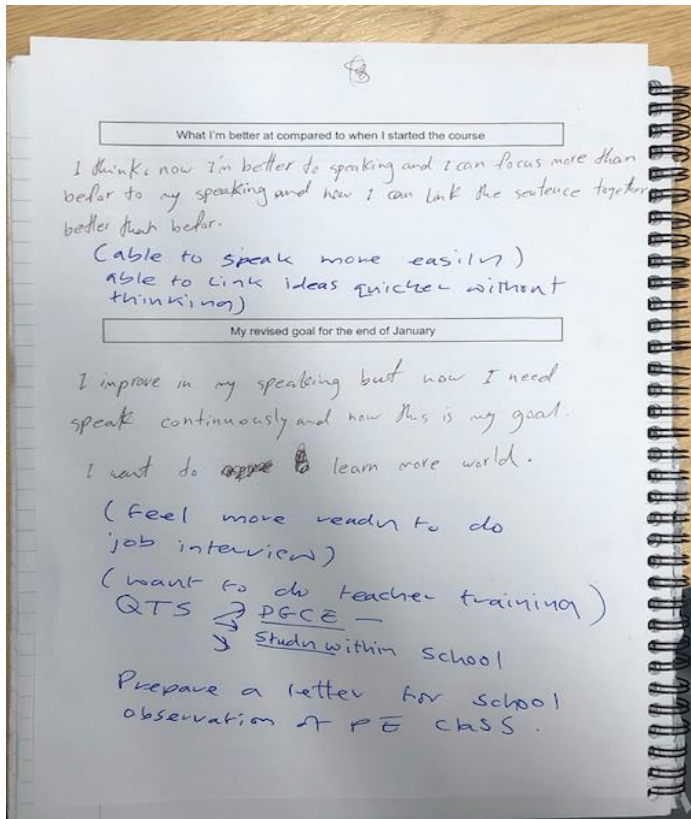 What I'm better at compared to when I started the course
I think now I'm better to speaking and I can focus more than
befor to my speaking and how I can link the sentence together
better than befor.
(able to speak more easily)
able to link ideas quicker without
thinking)
My revised goal for the end of January
I improve in my speaking but now I need
speak continuously and now this is my goal.
I want do learn more world.
(Feel more ready to do
job interview)
(want to do teacher training)
QTS PGCE —
Study within school
Prepare a letter for school
observation of PE class.